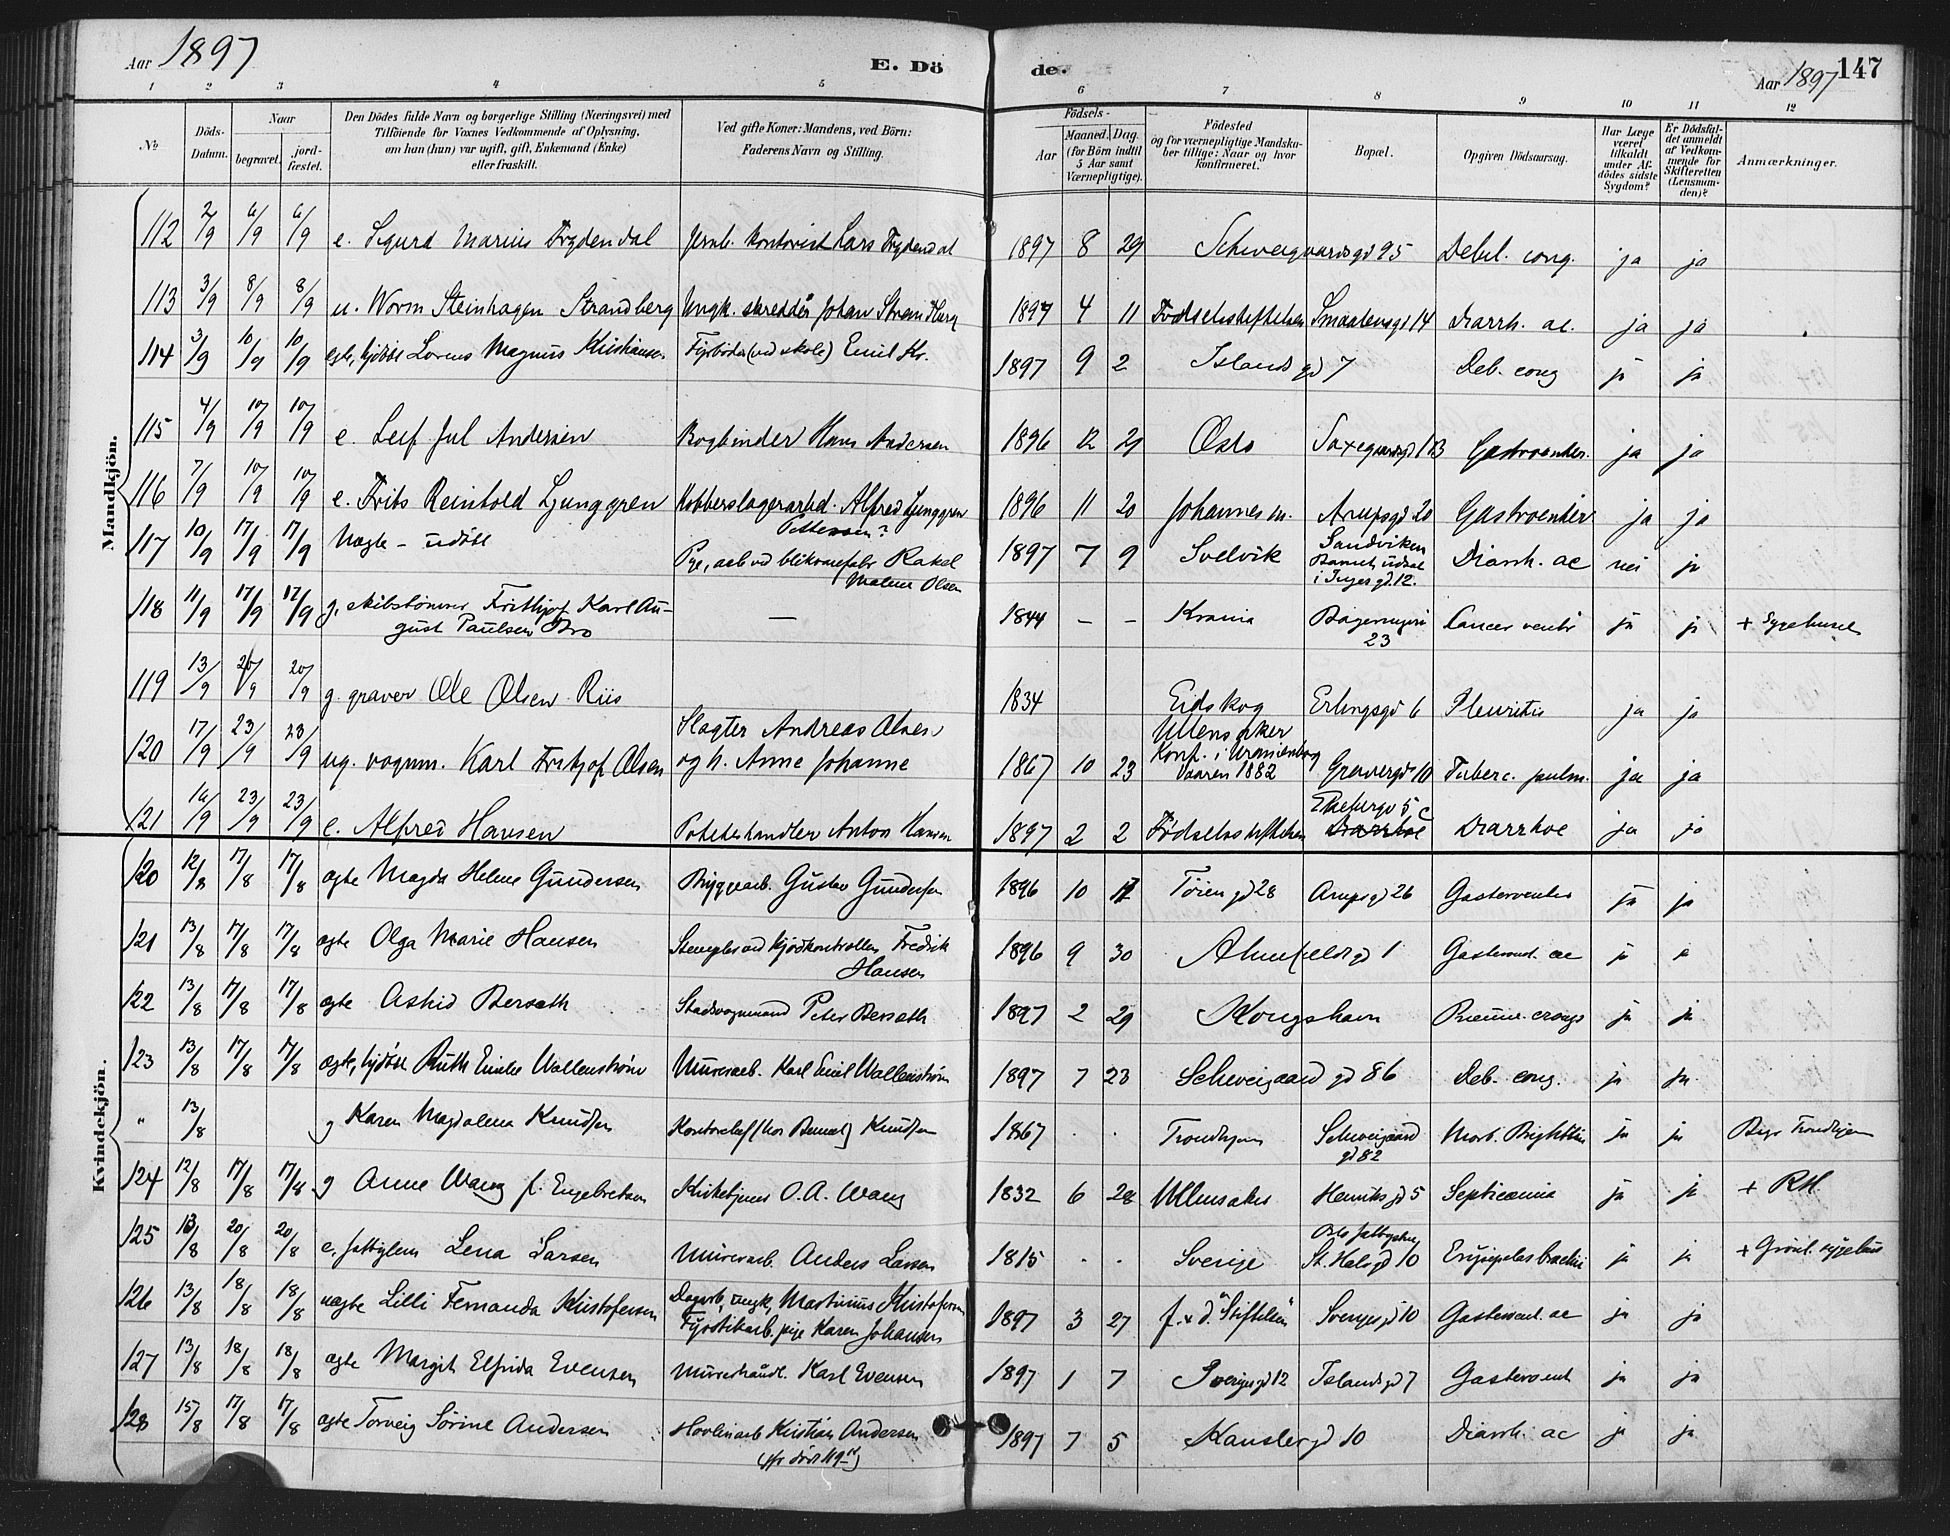 Aar 1897 E. Dö de. Aar 1897 147
1 2 3 4 5 6 7 8 9 10 11 12
№ Döds-Datum. Naar begravet. jord-fæstet. Den Dödes fulde Navn og borgerlige Stilling (Næringsvei) med Tilföiende for Voxnes Vedkommende af Oplysning, om han (hun) var ugift, gift, Enkemand (Enke) eller fraskilt. Ved gifte Koner: Mandens, ved Börn: Faderens Navn og Stilling. Födsels- Aar Maaned. Dag. (for Börn indtil 5 Aar samt Værnepligtige). Födested og for værnepligtige Mandskaber tillige: Naar og hvor konfirmeret. Bopæl. Opgiven Dödsaarsag. Har Læge været tilkaldt under Afdödes sidste Sygdom? Er Dödsfaldet anmeldt af Vedkommende for Skifteretten (Lensmanden)? Anmærkninger.
Mandkjön.
112 2/9 6/9 6/9 e. Sigurd Marius Frydendal Jernb. kontorist Lars Frydendal 1897 8 29 Schweigaardsgd 95 Debil. cong. ja ja
113 3/9 8/9 8/9 u. Worm Steinhagen Strandberg Ungk. skredder Johan Strandberg 1897 4 11 Fødselsstiftelsen Smaalensgd 14 Diarrh. ac. ja ja
114 3/9 10/9 10/9 egte, hjdøbt Lorens Magnus Kristiansen Fyrbøder (ved skole) Emil Kr. 1897 9 2 Islands gd 7 Deb. cong ja ja
115 4/9 10/9 10/9 e. Leif Jul Andersen Bogbinder Hans Andersen 1896 12 29 Oslo Saxegaardsgd 1B Gastroenter. ja ja
116 7/9 10/9 10/9 e. Frits Reinhold Ljunggren Kobberslagerarbd. Alfred Ljunggren 1896 11 20 Johannes m. Arupsgd 20 Gastroenter ja ja
117 10/9 17/9 17/9 Uægte - udøbt Pettersen? Pige, arb ved blikvarefabr Rakel Maline Olsen 1897 7 9 Svelvik Sandviken Barnet udsat i Ingesgd. 12. Diarrh. ac nei ja
118 11/9 17/9 17/9 g. skibstømrer Frithjof Karl August Paulsen Bro — 1844 - - Krania 23 Cancer ventr ja ja + Sygehuset
119 13/9 20/9 20/9 g. graver Ole Olsen Riis 1834 Eidskog Erlingsgd 6 Pleuritis ja ja
120 17/9 23/9 23/9 ug. vognm. Karl Frithjof Olsen Slagter Andreas Olsen og h. Anne Johanne 1867 10 23 Ullensaker Konf. i Uranienborg Vaaren 1882 Grønergd 10 Tuberc. pulm. ja ja
121 19/9 23/9 23/9 e. Alfred Hansen Poteteshandler Anton Hansen 1897 2 2 Fødselsstiftelsen Ekebergv 5, c Diarrhoe Diarrhoe ja ja
Kvindekjön.
120 12/8 17/8 17/8 ægte Magda Helene Gundersen Bryggearb. Gustav Gundersen 1896 10 17 Tøiengd 28 Arupsgd 26 Gasteroenter ja ja
121 13/8 17/8 17/8 ægte Olga Marie Hansen Stempler ved kjødkontrollen Fredrik Hansen 1896 9 30 Ahnfeldtsgd 1 Gasteroent. ac ja ja
122 13/8 17/8 17/8 ægte Astrid Berseth Stadsvognmand Peter Berseth 1897 2 29 Kongshavn Pneum. croup ja ja
123 13/8 17/8 17/8 ægte, hjdøbt Ruth Emilie Wallenstrøm Murerarb. Karl Emil Wallenstrøm 1897 7 23 Schweigaard gd 86 Deb. cong. ja ja
" 13/8 g Karen Magdalena Knudsen Kontorchef Knudsen 1867 . . Trondhjem Schweigaard gd 82 Morb. Brightii ja ja Begr Trondhjem
124 12/8 17/8 17/8 g Anne Wang f. Engebretsen Kirketjener O. A. Wang 1832 6 28 Ullensaker Henriks gd 5 Septicæmia ja ja + RH
125 13/8 20/8 20/8 e. fattiglem Lena Larsen Murerarb. Anders Larsen 1815 . . Sverige Oslo fattighus St. Halv.gd 10 Erysipelas brachii ja ja + Grønl. sygehus
126 13/8 18/8 18/8 uægte Lilli Fernanda Kristofersen Dagarb, ungk, Martinius Kristofersen Fyrstikarb. pige Karen Johansen 1897 3 27 f. v. d. "Stiftelsen" Sverigesgd 10 Gasteroent. ac ja ja
127 13/8 18/8 18/8 ægte Margit Elfrida Evensen Murerhaandl. Karl Evensen 1897 1 7 Sverigesgd 12 Islandsgd 7 Gasteroent ja ja
128 15/8 17/8 17/8 ægte Torveig Sørine Andersen Høvleriarb Kristian Andersen 1897 7 5 Kanslergd 10 Diarrh. ac ja ja